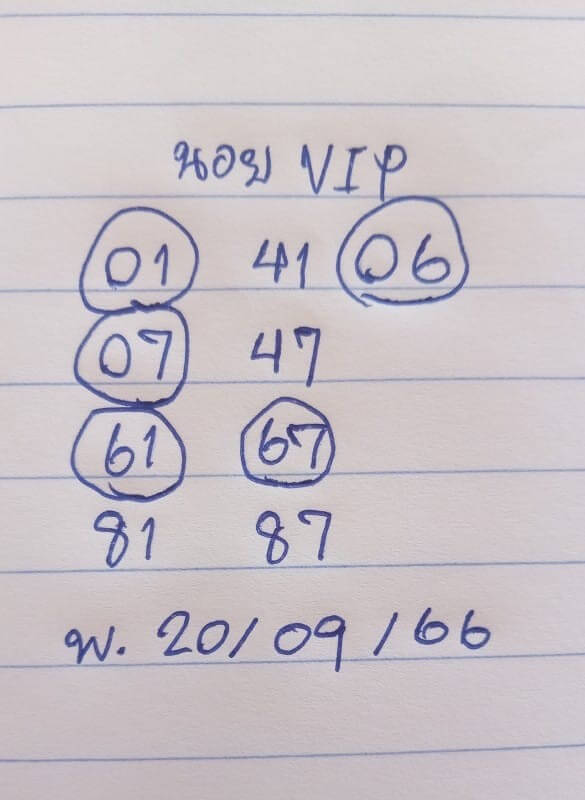 นอย VIP
01 41 06
07 47
61 67
81 87
พ. 20/09/66